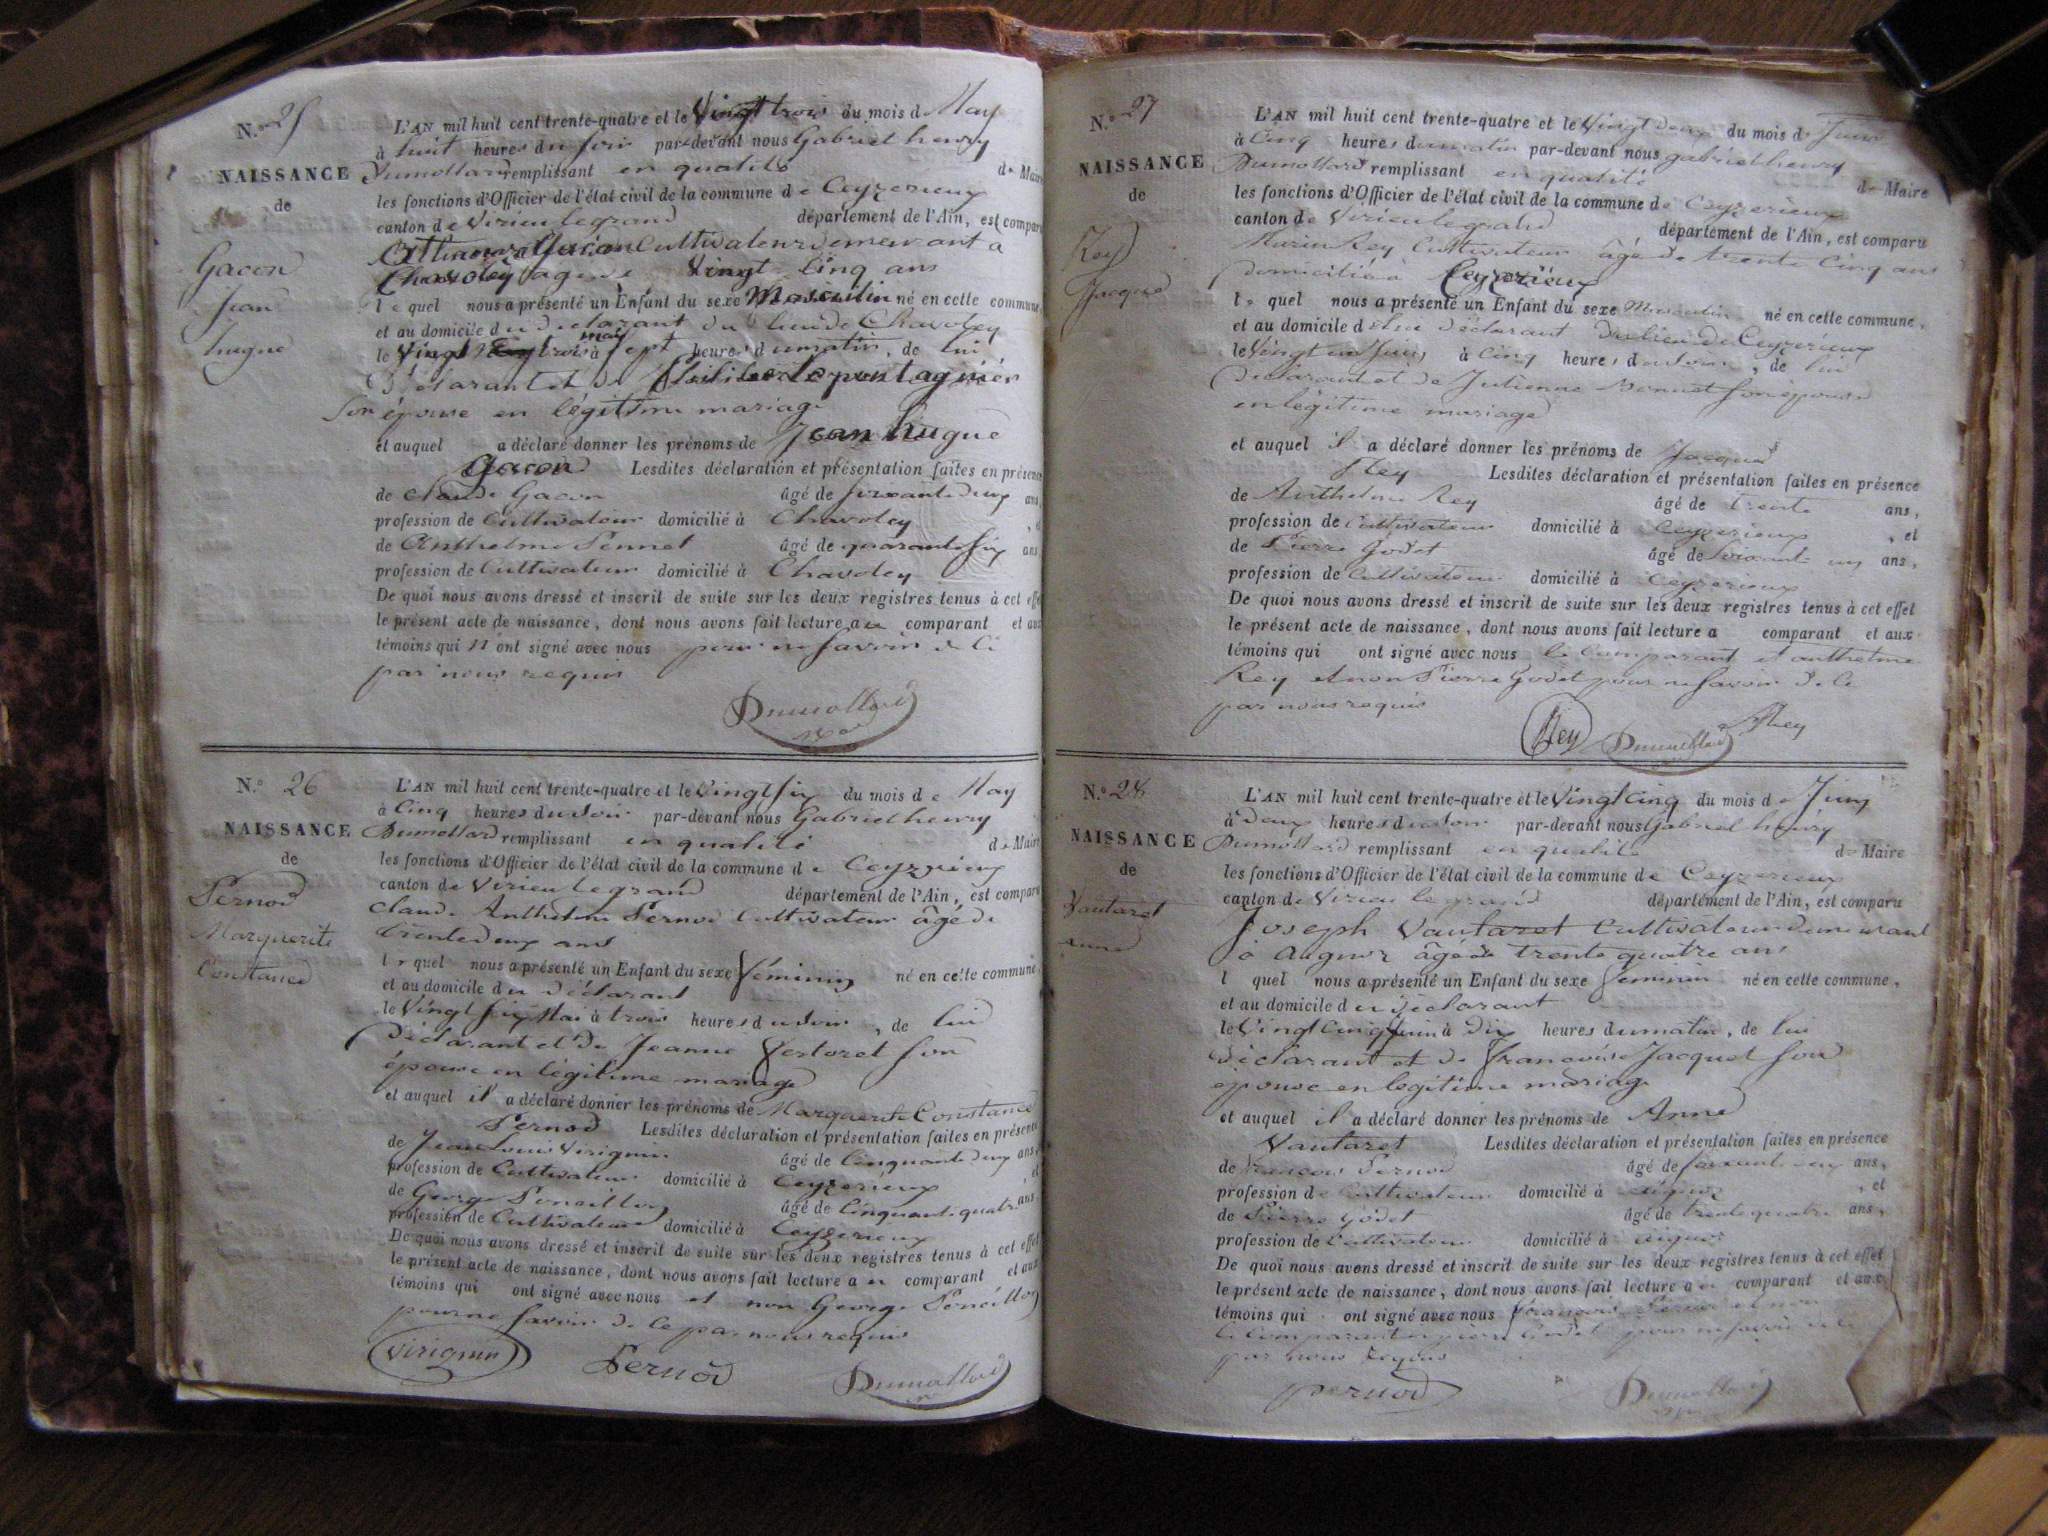 N.º 25
NAISSANCE
de
Gacon
Jean
hugue
L'AN mil huit cent trente-quatre et le Vingt trois du mois de May
à huit heures du soir par-devant nous Gabriel henry
Dumollard remplissant en qualité de Maire
les fonctions d'Officier de l'état civil de la commune de Ceyzerieux
canton de Virieu legrand département de l'Ain, est comparu
Gacon Cultivateur demeurant a
Chavoley age de Vingt Cinq ans
lequel nous a présenté un Enfant du sexe Masculin né en cette commune,
et au domicile du declarant du lieu de Chavoley
le Vingt trois may à sept heures du matin, de lui
Déclarant et de
son épouse en légitime mariage
et auquel a déclaré donner les prénoms de Jean hugue
Gacon Lesdites déclaration et présentation faites en présence
de Claude Gacon âgé de soixante deux ans,
profession de Cultivateur domicilié à Chavoley , et
de Anthelme Pennet âgé de quarante six ans
profession de Cultivateur domicilié à Chavoley
De quoi nous avons dressé et inscrit de suite sur les deux registres tenus à cet effet
le présent acte de naissance, dont nous avons fait lecture au comparant et aux
témoins qui n'ont signé avec nous pour ne savoir de ce
par nous requis
Dumollard
N.º 26
NAISSANCE
de
Pernod
Marguerite
Constance
L'AN mil huit cent trente-quatre et le Vingt six du mois de May
à Cinq heures du soir par-devant nous Gabriel henry
Dumollard remplissant en qualité de Maire
les fonctions d'Officier de l'état civil de la commune de Ceyzerieux
canton de Virieu legrand département de l'Ain, est comparu
Claude Anthelme Pernod Cultivateur âgé de
trente deux ans
lequel nous a présenté un Enfant du sexe féminin né en cette commune,
et au domicile du déclarant
le Vingt six Mai à trois heures du soir, de lui
Déclarant et de Jeanne Vertoret son
épouse en légitime mariage
et auquel il a déclaré donner les prénoms de Marguerite Constance
Pernod Lesdites déclaration et présentation faites en présence
de Jean Louis Virignin âgé de Cinquante deux ans,
profession de Cultivateur domicilié à Ceyzerieux , et
de George Poncillon âgé de Cinquante quatre ans
profession de Cultivateur domicilié à Ceyzerieux
De quoi nous avons dressé et inscrit de suite sur les deux registres tenus à cet effet
le présent acte de naissance, dont nous avons fait lecture au comparant et aux
témoins qui ont signé avec nous et non George Poncillon
pour ne savoir de ce par nous requis
Virignin Pernod Dumollard
N.º 27
NAISSANCE
de
Rey
Jacque
L'AN mil huit cent trente-quatre et le Vingt deux du mois de Juin
à Cinq heures du matin par-devant nous gabriel henry
Dumollard remplissant en qualité de Maire
les fonctions d'Officier de l'état civil de la commune de Ceyzerieux
canton de Virieu legrand département de l'Ain, est comparu
Rey Cultivateur âgé de trente Cinq ans
domicilié à Ceyzerieux
lequel nous a présenté un Enfant du sexe Masculin né en cette commune,
et au domicile déclarant du lieu de Ceyzerieux
le Vingt un Juin à Cinq heures du soir, de lui
Déclarant et de Julienne Bonnet son épouse
en légitime mariage
et auquel il a déclaré donner les prénoms de Jacque
Rey Lesdites déclaration et présentation faites en présence
de Anthelme Rey âgé de trente ans,
profession de Cultivateur domicilié à Ceyzerieux , et
de Pierre Godet âgé de soixante un ans,
profession de Cultivateur domicilié à Ceyzerieux
De quoi nous avons dressé et inscrit de suite sur les deux registres tenus à cet effet
le présent acte de naissance, dont nous avons fait lecture a comparant et aux
témoins qui ont signé avec nous le Comparant et anthelme
Rey et non Pierre Godet pour ne savoir de ce
par nous requis
Rey Dumollard Rey
N.º 28
NAISSANCE
de
Vautaret
anne
L'AN mil huit cent trente-quatre et le Vingt Cinq du mois de Juin
à deux heures du soir par-devant nous Gabriel henry
Dumollard remplissant en qualité de Maire
les fonctions d'Officier de l'état civil de la commune de Ceyzerieux
canton de Virieu le grand département de l'Ain, est comparu
Joseph Vautaret Cultivateur demeurant
à Aignoz âgé de trente quatre ans
l quel nous a présenté un Enfant du sexe féminin né en cette commune,
et au domicile du déclarant
le Vingt Cinq juin à dix heures du matin, de lui
déclarant et de Francoise Jacquet son
epouse en legitime mariage
et auquel il a déclaré donner les prénoms de Anne
Vautaret Lesdites déclaration et présentation faites en présence
de francois Pernod âgé de soixante ans,
profession de Cultivateur domicilié à aignoz , et
de Pierre Godet âgé de trente quatre ans,
profession de Cultivateur domicilié à aignoz
De quoi nous avons dressé et inscrit de suite sur les deux registres tenus à cet effet
le présent acte de naissance, dont nous avons fait lecture au comparant et aux
témoins qui ont signé avec nous francois Pernod et non
le Comparant ni pierre Godet pour ne savoir de ce
par nous requis
pernod Dumollard